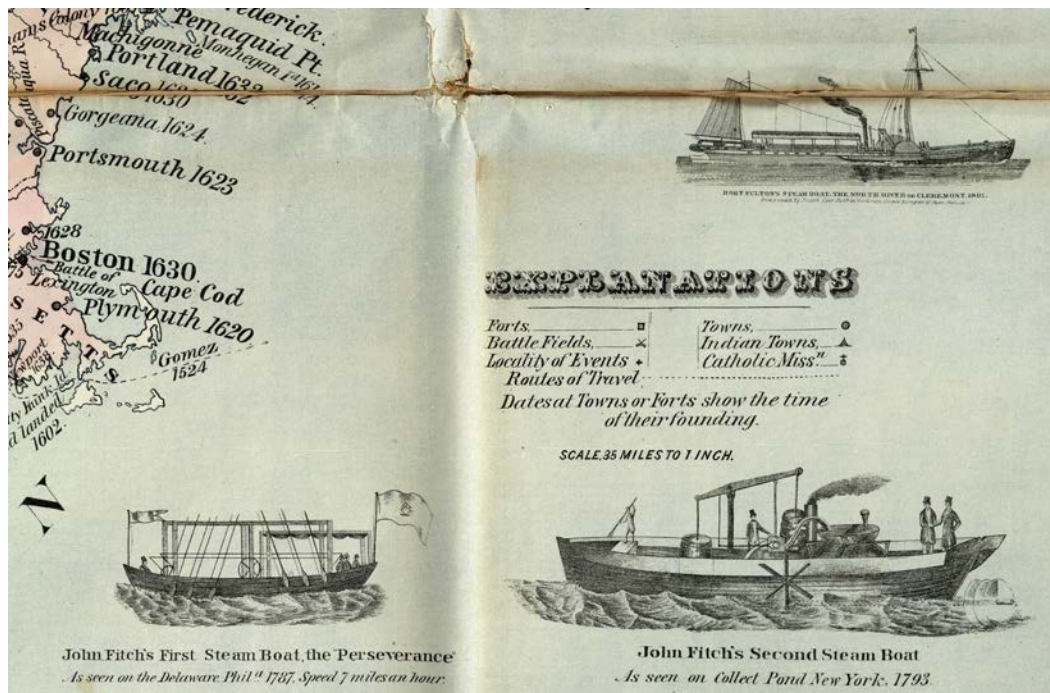 ederick.
Colony
Pemaquid Pt.
Machigonne
Monhegan
Portland 1632
Saco
1630
Piscataqua R.
Gorgeana, 1624
Portsmouth 1623
1628
Boston 1630.
Battle of
Lexington
Cape Cod
Plymouth 1620
SETTS
Newport
1638
Gomez
1524
d landed
1602.
N
ROBT FULTON'S STEAM BOAT, THE NORTH RIVER OR CLEREMONT, 1807.
EXPLANATIONS
Forts,
Towns,
Battle Fields,
Indian Towns,
Locality of Events
Catholic Missⁿ.
Routes of Travel
Dates at Towns or Forts show the time
of their founding.
SCALE, 35 MILES TO 1 INCH.
John Fitch's First Steam Boat, the "Perseverance"
As seen on the Delaware. Philᵃ 1787. Speed 7 miles an hour.
John Fitch's Second Steam Boat
As seen on Collect Pond New York, 1793.